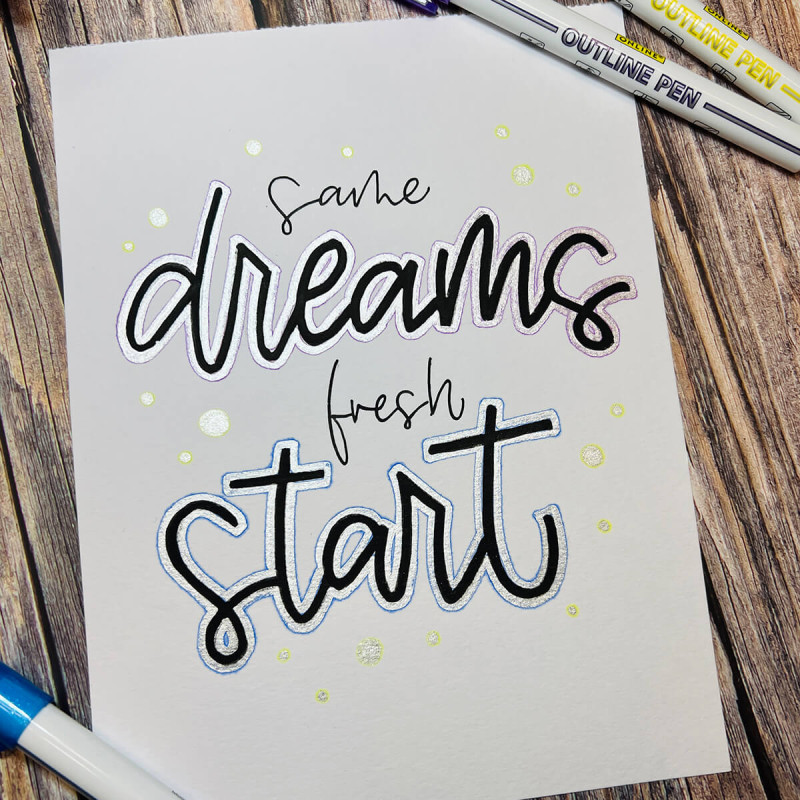 same
dreams
fresh
start
ONLINE
OUTLINE PEN
ONLINE
OUTLINE PEN